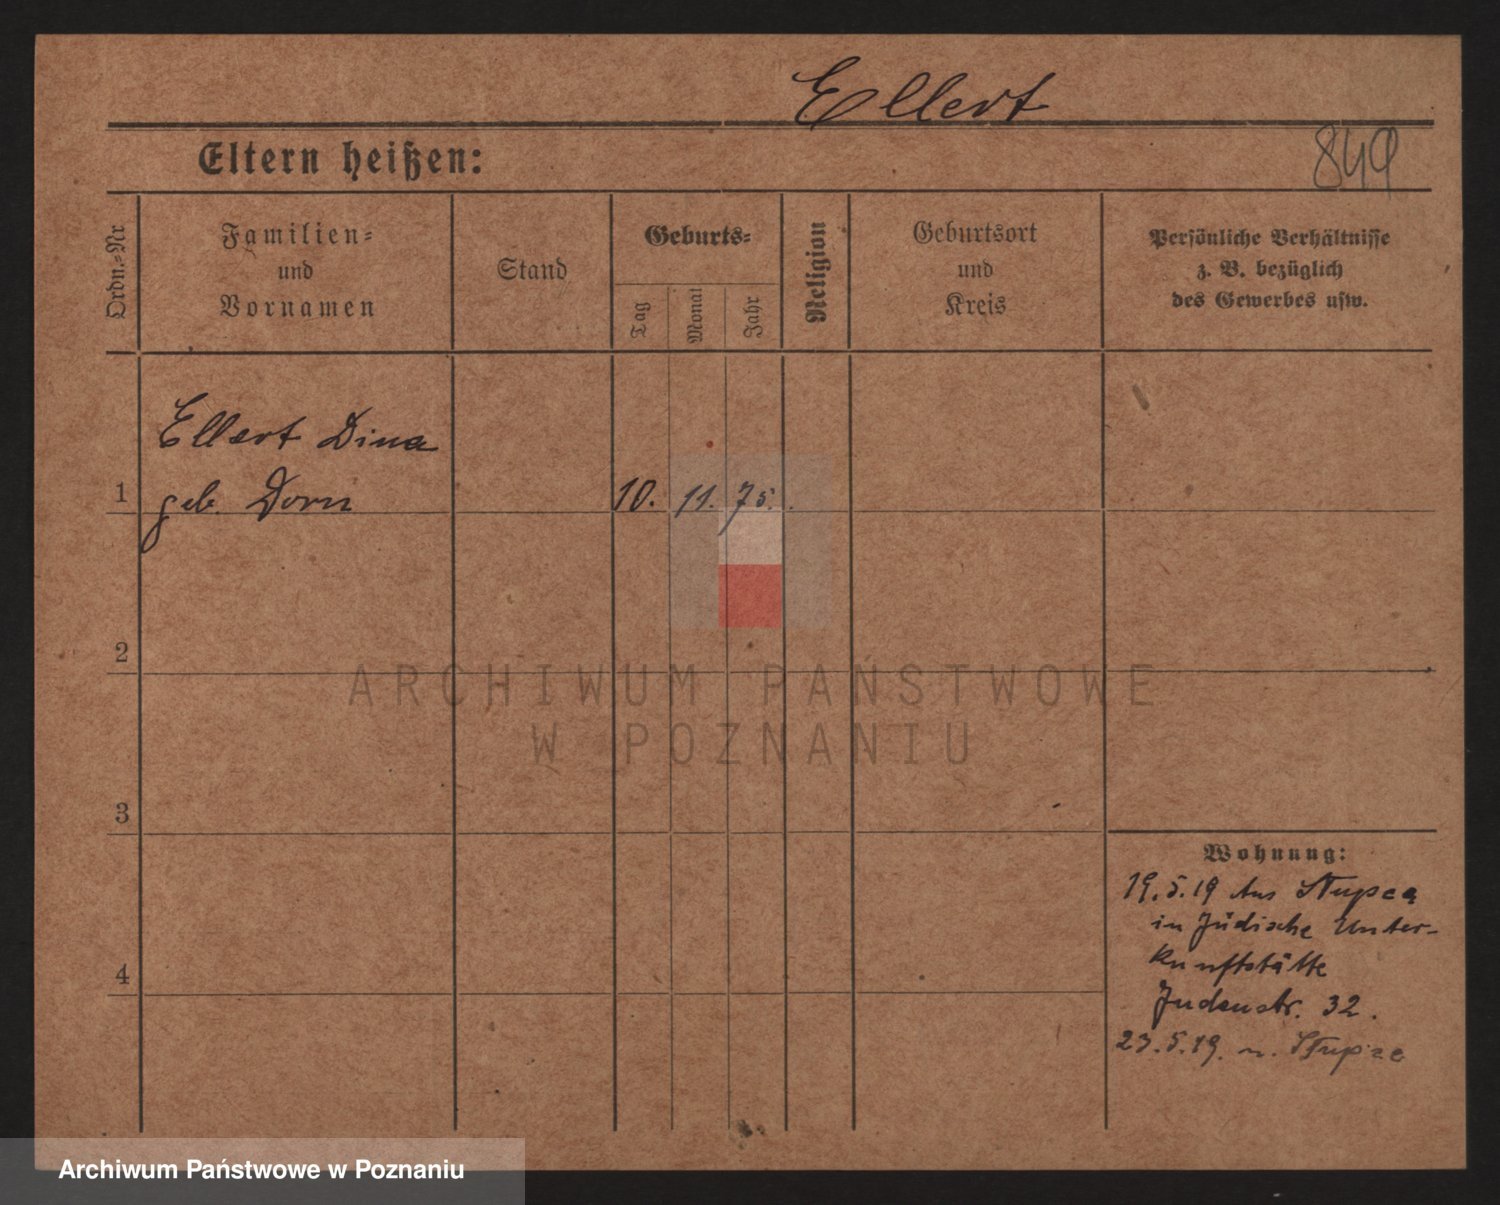 Ellert
Eltern heißen:
849
Ordn.-Nr
Familien-
und
Vornamen
Stand
Geburts-
Tag
Monat
Jahr
Religion
Geburtsort
und
Kreis
Persönliche Verhältnisse
z. B. bezüglich
des Gewerbes usw.
Ellert Dina
1 geb. Dorn 10. 11. 75.
2
3
4
Wohnung:
19.5.19 Aus Slupca
in Jüdische Unter-
kunftstätte
Judenstr. 32.
23.5.19. n. Slupce
ARCHIWUM PAŃSTWOWE
W POZNANIU
Archiwum Państwowe w Poznaniu